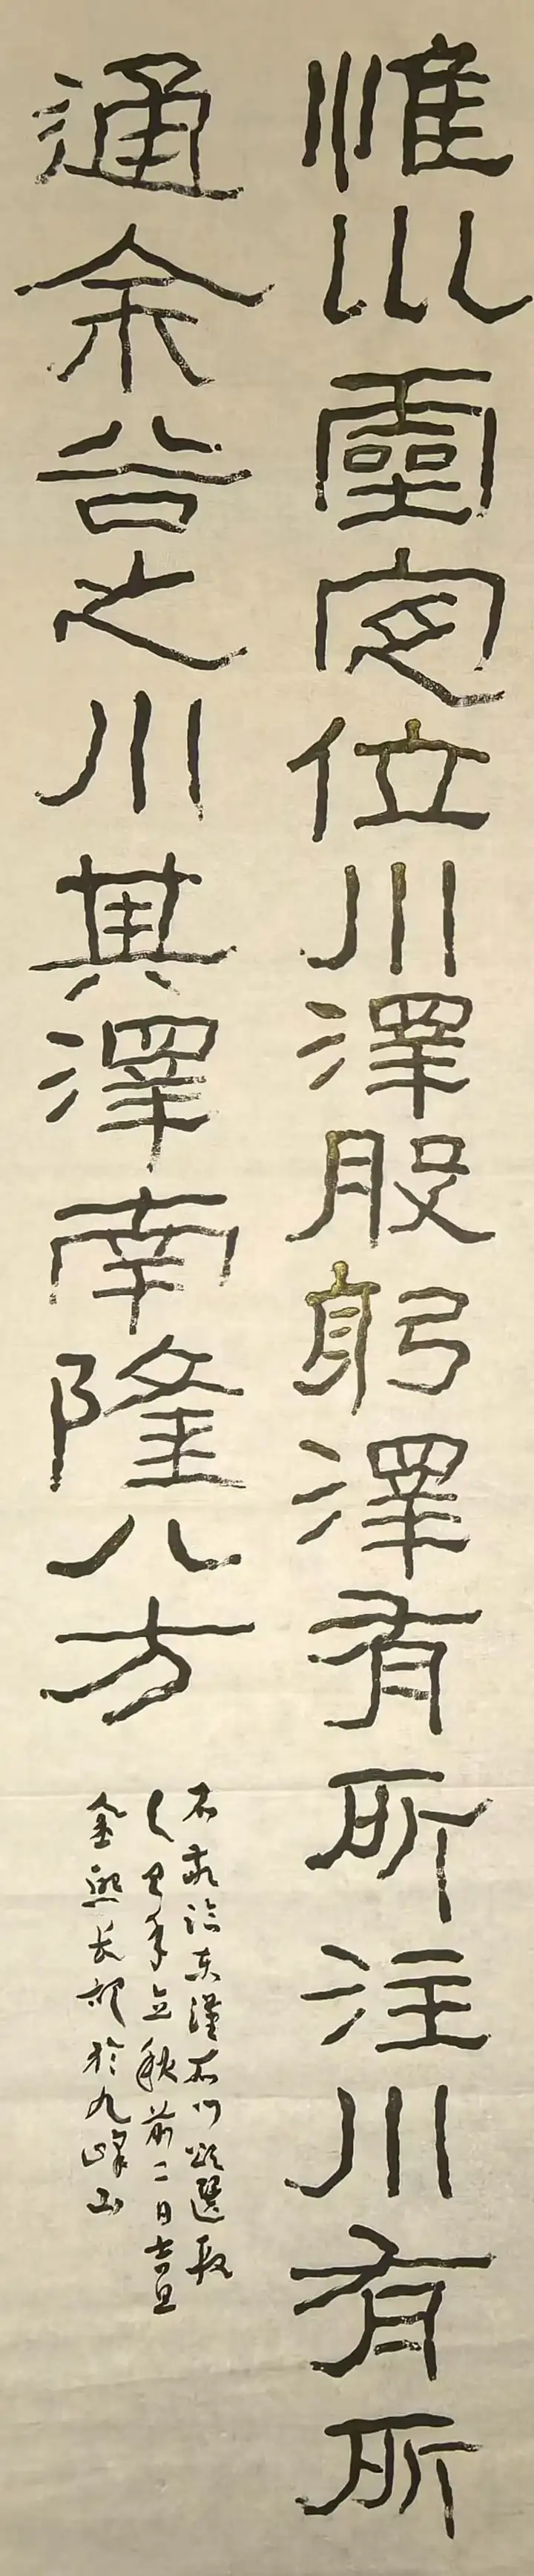 惟巛靈定位川澤股躬澤有所注川有所
通余谷之川其澤南隆八方
臨東漢石門頌選段
乙巳年立秋前二日吉旦
金熙長於九峰山